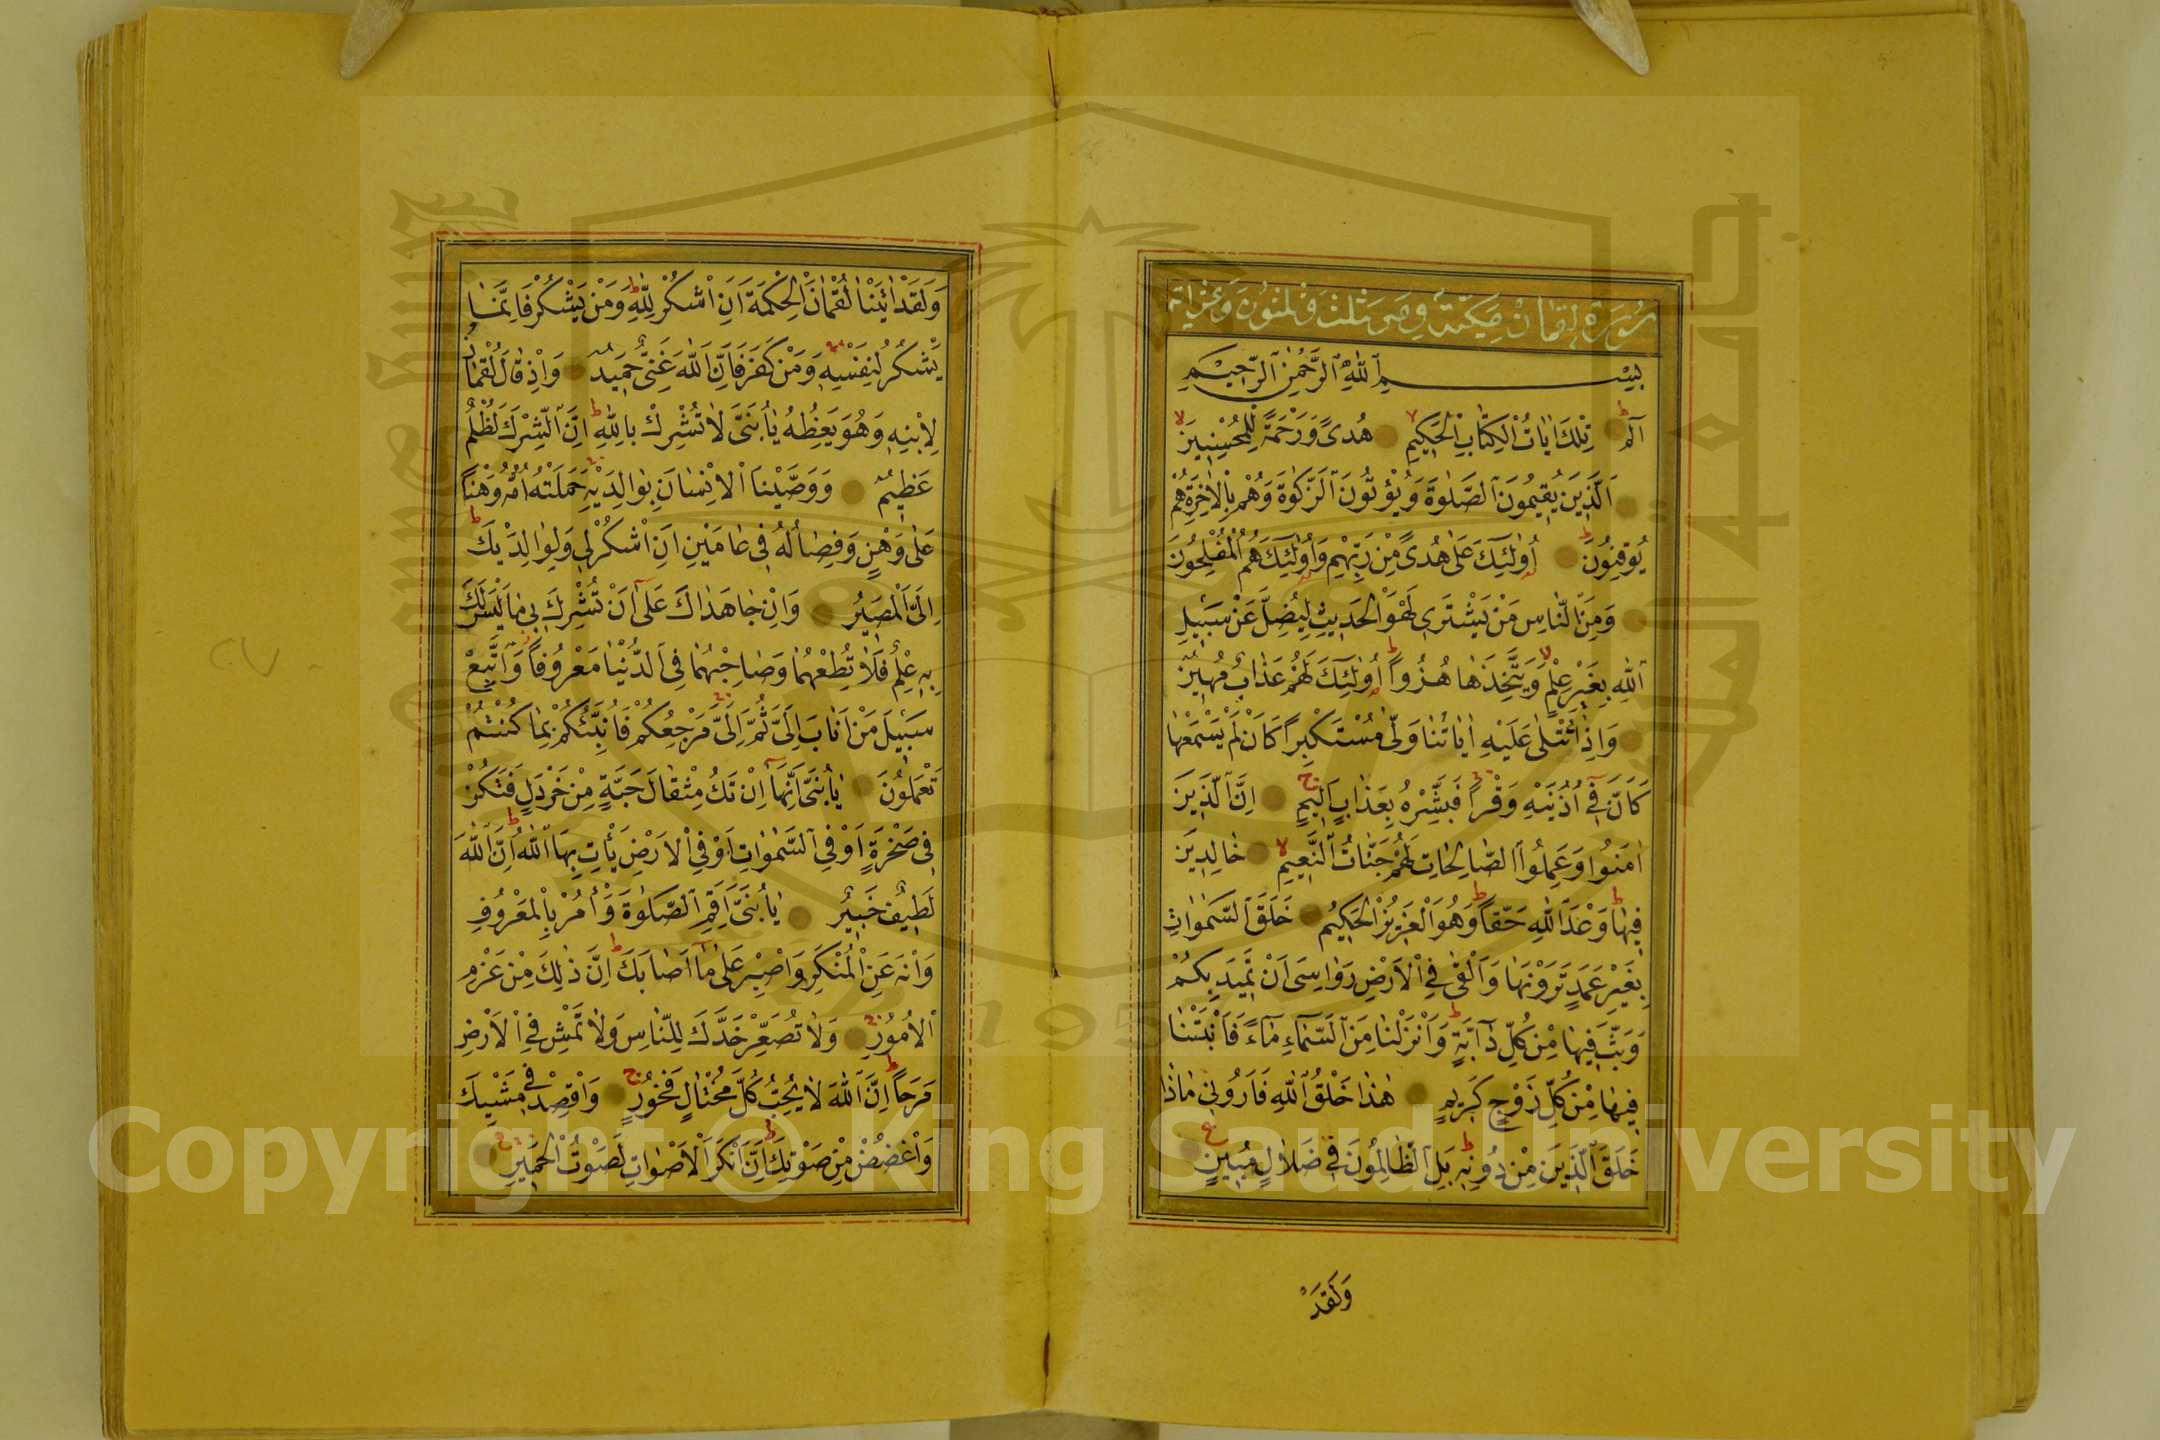 سُورَةُ لقمان مكيّة وهى ثلث وثلثون آية
بِسْمِ ٱللّٰهِ ٱلرَّحْمٰنِ ٱلرَّحِيمِ
الٓمٓ تِلْكَ اٰيَاتُ الْكِتَابِ الْحَكِيمِ هُدًى وَرَحْمَةً لِلْمُحْسِنِينَ
اَلَّذِينَ يُقِيمُونَ ٱلصَّلٰوةَ وَيُؤْتُونَ ٱلزَّكٰوةَ وَهُمْ بِالْاٰخِرَةِ هُمْ
يُوقِنُونَ اُولٰئِكَ عَلٰى هُدًى مِنْ رَبِّهِمْ وَاُولٰئِكَ هُمُ الْمُفْلِحُونَ
وَمِنَ النَّاسِ مَنْ يَشْتَرِى لَهْوَ الْحَدِيثِ لِيُضِلَّ عَنْ سَبِيلِ
ٱللّٰهِ بِغَيْرِ عِلْمٍ وَيَتَّخِذَهَا هُزُوًا اُولٰئِكَ لَهُمْ عَذَابٌ مُهِينٌ
وَاِذَا تُتْلٰى عَلَيْهِ اٰيَاتُنَا وَلّٰى مُسْتَكْبِرًا كَاَنْ لَمْ يَسْمَعْهَا
كَاَنَّ فِى اُذُنَيْهِ وَقْرًا فَبَشِّرْهُ بِعَذَابٍ اَلِيمٍ اِنَّ ٱلَّذِينَ
اٰمَنُوا وَعَمِلُوا ٱلصَّالِحَاتِ لَهُمْ جَنَّاتُ ٱلنَّعِيمِ خَالِدِينَ
فِيهَا وَعْدَ ٱللّٰهِ حَقًّا وَهُوَ الْعَزِيزُ الْحَكِيمُ خَلَقَ ٱلسَّمٰوَاتِ
بِغَيْرِ عَمَدٍ تَرَوْنَهَا وَاَلْقٰى فِى الْاَرْضِ رَوَاسِىَ اَنْ تَمِيدَ بِكُمْ
وَبَثَّ فِيهَا مِنْ كُلِّ دَآبَّةٍ وَاَنْزَلْنَا مِنَ ٱلسَّمَآءِ مَآءً فَاَنْبَتْنَا
فِيهَا مِنْ كُلِّ زَوْجٍ كَرِيمٍ هٰذَا خَلْقُ ٱللّٰهِ فَاَرُونِى مَاذَا
خَلَقَ ٱلَّذِينَ مِنْ دُونِهِ بَلِ ٱلظَّالِمُونَ فِى ضَلَالٍ مُبِينٍ
وَلَقَدْ
وَلَقَدْ اٰتَيْنَا لُقْمَانَ الْحِكْمَةَ اَنِ اشْكُرْ لِلّٰهِ وَمَنْ يَشْكُرْ فَاِنَّمَا
يَشْكُرُ لِنَفْسِهِ وَمَنْ كَفَرَ فَاِنَّ اللّٰهَ غَنِىٌّ حَمِيدٌ وَاِذْ قَالَ لُقْمَانُ
لِابْنِهِ وَهُوَ يَعِظُهُ يَا بُنَىَّ لَا تُشْرِكْ بِاللّٰهِ اِنَّ ٱلشِّرْكَ لَظُلْمٌ
عَظِيمٌ وَوَصَّيْنَا الْاِنْسَانَ بِوَالِدَيْهِ حَمَلَتْهُ اُمُّهُ وَهْنًا
عَلٰى وَهْنٍ وَفِصَالُهُ فِى عَامَيْنِ اَنِ اشْكُرْ لِى وَلِوَالِدَيْكَ
اِلَىَّ الْمَصِيرُ وَاِنْ جَاهَدَاكَ عَلٰٓى اَنْ تُشْرِكَ بِى مَا لَيْسَ لَكَ
بِهِ عِلْمٌ فَلَا تُطِعْهُمَا وَصَاحِبْهُمَا فِى ٱلدُّنْيَا مَعْرُوفًا وَٱتَّبِعْ
سَبِيلَ مَنْ اَنَابَ اِلَىَّ ثُمَّ اِلَىَّ مَرْجِعُكُمْ فَاُنَبِّئُكُمْ بِمَا كُنْتُمْ
تَعْمَلُونَ يَا بُنَىَّ اِنَّهَآ اِنْ تَكُ مِثْقَالَ حَبَّةٍ مِنْ خَرْدَلٍ فَتَكُنْ
فِى صَخْرَةٍ اَوْ فِى ٱلسَّمٰوَاتِ اَوْ فِى الْاَرْضِ يَأْتِ بِهَا ٱللّٰهُ اِنَّ ٱللّٰهَ
لَطِيفٌ خَبِيرٌ يَا بُنَىَّ اَقِمِ ٱلصَّلٰوةَ وَأْمُرْ بِالْمَعْرُوفِ
وَانْهَ عَنِ الْمُنْكَرِ وَاصْبِرْ عَلٰى مَآ اَصَابَكَ اِنَّ ذٰلِكَ مِنْ عَزْمِ
الْاُمُورِ وَلَا تُصَعِّرْ خَدَّكَ لِلنَّاسِ وَلَا تَمْشِ فِى الْاَرْضِ
مَرَحًا اِنَّ ٱللّٰهَ لَا يُحِبُّ كُلَّ مُخْتَالٍ فَخُورٍ وَاقْصِدْ فِى مَشْيِكَ
وَاغْضُضْ مِنْ صَوْتِكَ اِنَّ اَنْكَرَ الْاَصْوَاتِ لَصَوْتُ الْحَمِيرِ
Copyright © King Saud University